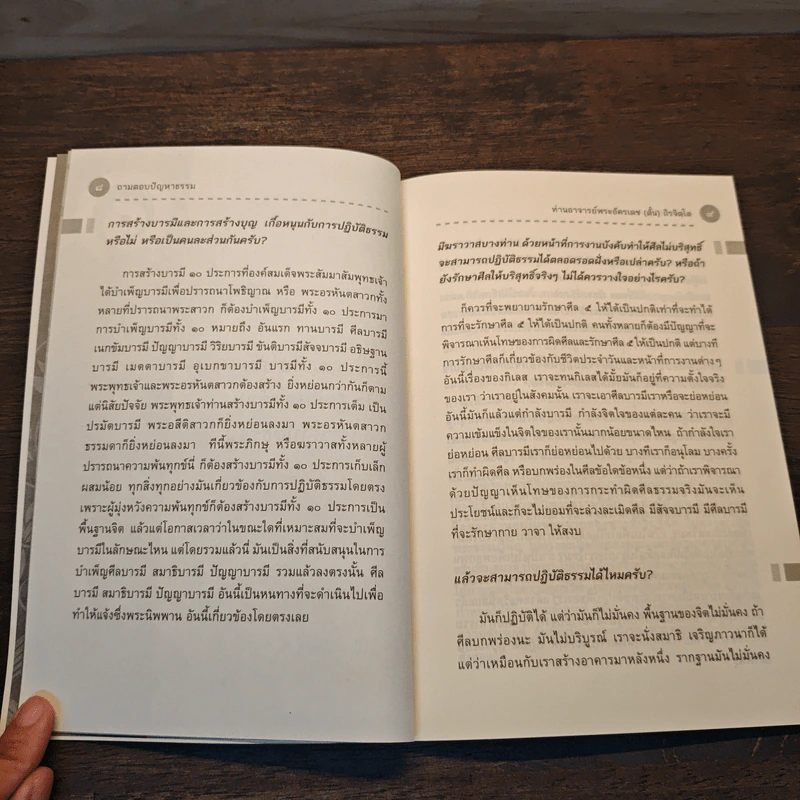 ๘
ถามตอบปัญหาธรรม
การสร้างบารมีและการสร้างบุญ เกื้อหนุนกับการปฏิบัติธรรม
หรือไม่ หรือเป็นคนละส่วนกันครับ?
การสร้างบารมี ๑๐ ประการที่องค์สมเด็จพระสัมมาสัมพุทธเจ้า
ได้บำเพ็ญบารมีเพื่อปรารถนาโพธิญาณ หรือ พระอรหันตสาวกทั้ง
หลายที่ปรารถนาพระสาวก ก็ต้องบำเพ็ญบารมีทั้ง ๑๐ ประการมา
การบำเพ็ญบารมีทั้ง ๑๐ หมายถึง อันแรก ทานบารมี ศีลบารมี
เนกขัมบารมี ปัญญาบารมี วิริยบารมี ขันติบารมีสัจบารมี อธิษฐาน
บารมี เมตตาบารมี อุเบกขาบารมี บารมีทั้ง ๑๐ ประการนี้
พระพุทธเจ้าและพระอรหันตสาวกต้องสร้าง ยิ่งหย่อนกว่ากันก็ตาม
แต่นิสัยปัจจัย พระพุทธเจ้าท่านสร้างบารมีทั้ง ๑๐ ประการเต็ม เป็น
ปรมัตบารมี พระอสีติสาวกก็ยิ่งหย่อนลงมา พระอรหันตสาวก
ธรรมดาก็ยิ่งหย่อนลงมา ทีนี้พระภิกษุ หรือฆราวาสทั้งหลายผู้
ปรารถนาความพ้นทุกข์นี่ ก็ต้องสร้างบารมีทั้ง ๑๐ ประการเก็บเล็ก
ผสมน้อย ทุกสิ่งทุกอย่างมันเกี่ยวข้องกับการปฏิบัติธรรมโดยตรง
เพราะผู้มุ่งหวังความพ้นทุกข์ก็ต้องสร้างบารมีทั้ง ๑๐ ประการเป็น
พื้นฐานจิต แล้วแต่โอกาสเวลาว่าในขณะใดที่เหมาะสมที่จะบำเพ็ญ
บารมีในลักษณะไหน แต่โดยรวมแล้วนี่ มันเป็นสิ่งที่สนับสนุนในการ
บำเพ็ญศีลบารมี สมาธิบารมี ปัญญาบารมี รวมแล้วลงตรงนั้น ศีล
บารมี สมาธิบารมี ปัญญาบารมี อันนี้เป็นหนทางที่จะดำเนินไปเพื่อ
ทำให้แจ้งซึ่งพระนิพพาน อันนี้เกี่ยวข้องโดยตรงเลย
ท่านอาจารย์พระอัครเดช (ตั๋น) ถิรจิตฺโต
๙
มีฆราวาสบางท่าน ด้วยหน้าที่การงานบังคับทำให้ศีลไม่บริสุทธิ์
จะสามารถปฏิบัติธรรมได้ตลอดรอดฝั่งหรือเปล่าครับ? หรือถ้า
ยังรักษาศีลให้บริสุทธิ์จริงๆ ไม่ได้ควรวางใจอย่างไรครับ?
ก็ควรที่จะพยายามรักษาศีล ๕ ให้ได้เป็นปกติเท่าที่จะทำได้
การที่จะรักษาศีล ๕ ให้ได้เป็นปกติ คนทั้งหลายก็ต้องมีปัญญาที่จะ
พิจารณาเห็นโทษของการผิดศีลและรักษาศีล ๕ให้เป็นปกติได้ แต่บางที
การรักษาศีลก็เกี่ยวข้องกับชีวิตประจำวันและหน้าที่การงานต่างๆ
อันนี้เรื่องของกิเลส เราจะทนกิเลสได้มั้ยมันก็อยู่ที่ความตั้งใจจริง
ของเรา ว่าเราอยู่ในสังคมนั้น เราจะเอาศีลบารมีเราหรือจะย่อหย่อน
อันนี้มันก็แล้วแต่กำลังบารมี กำลังจิตใจของแต่ละคน ว่าเราจะมี
ความเข้มแข็งในจิตใจของเรานั้นมากน้อยขนาดไหน ถ้ากำลังใจเรา
ย่อหย่อน ศีลบารมีเราก็ย่อหย่อนไปด้วย บางทีเราก็อนุโลม บางครั้ง
เราก็ทำผิดศีล หรือบกพร่องในศีลข้อใดข้อหนึ่ง แต่ว่าถ้าเราพิจารณา
ด้วยปัญญาเห็นโทษของการกระทำผิดศีลธรรมจริงมันจะเห็น
ประโยชน์และก็จะไม่ยอมที่จะล่วงละเมิดศีล มีสัจบารมี มีศีลบารมี
ที่จะรักษากาย วาจา ให้สงบ
แล้วจะสามารถปฏิบัติธรรมได้ไหมครับ?
มันก็ปฏิบัติได้ แต่ว่ามันก็ไม่มั่นคง พื้นฐานของจิตไม่มั่นคง ถ้า
ศีลบกพร่องนะ มันไม่บริบูรณ์ เราจะนั่งสมาธิ เจริญภาวนาก็ได้
แต่ว่าเหมือนกับเราสร้างอาคารมาหลังหนึ่ง รากฐานมันไม่มั่นคง